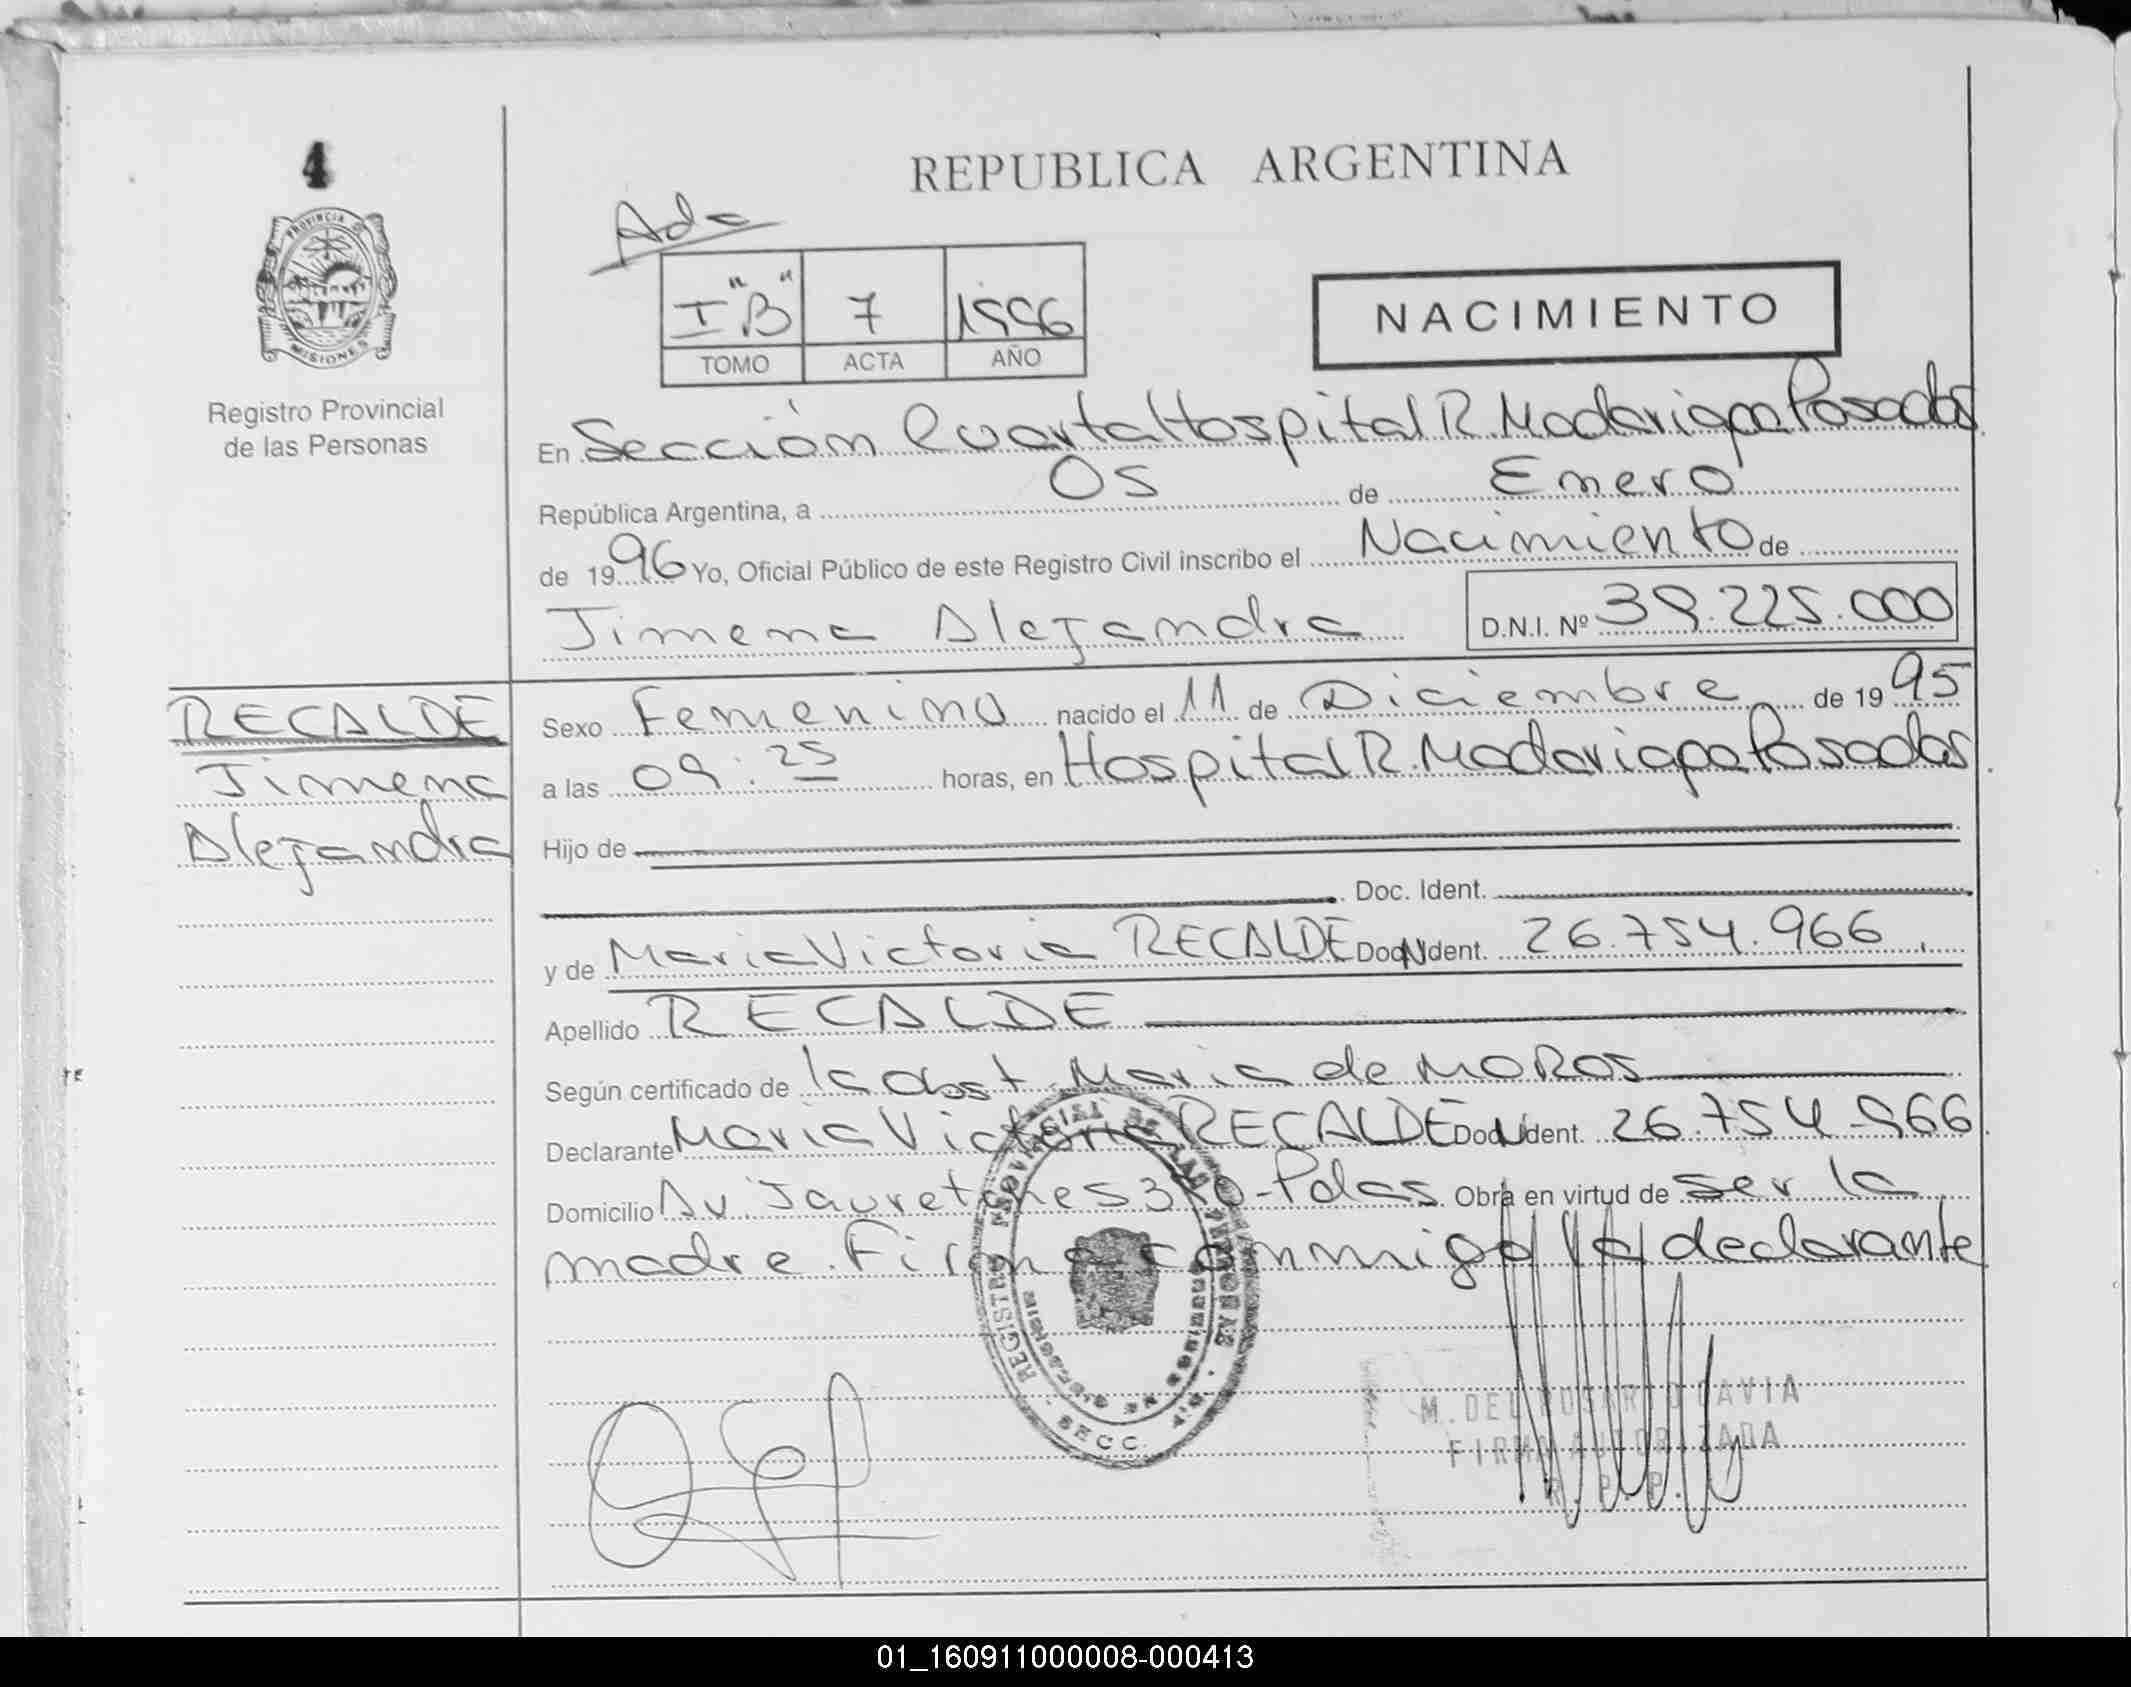 4
PROVINCIA DE
MISIONES
Registro Provincial
de las Personas
REPUBLICA ARGENTINA
Ada
I "B" 7 1996
TOMO ACTA AÑO
NACIMIENTO
En Sección Cuarta Hospital R. Madariaga Posadas
República Argentina, a 05 de Enero
de 1996 Yo, Oficial Público de este Registro Civil inscribo el Nacimiento de
Jimena Alejandra D.N.I. Nº 39.225.000
RECALDE
Jimena
Alejandra
Sexo Femenino nacido el 11 de Diciembre de 1995
a las 09:25 horas, en Hospital R. Madariaga Posadas
Hijo de
Doc. Ident.
y de Maria Victoria RECALDE Doc. Ident. 26.754.966
Apellido RECALDE
Según certificado de la Obst. Maria de MOROS
Declarante Maria Victoria RECALDE Doc. Ident. 26.754.966
Domicilio Av. Jauretches 380-Pdas. Obra en virtud de ser la
madre. Firma conmigo la declarante
REGISTRO PROVINCIAL DE LAS PERSONAS
SECC.
M. DEL ROSARIO GAVIA
FIRMA AUTORIZADA
R. P. P.
01_160911000008-000413